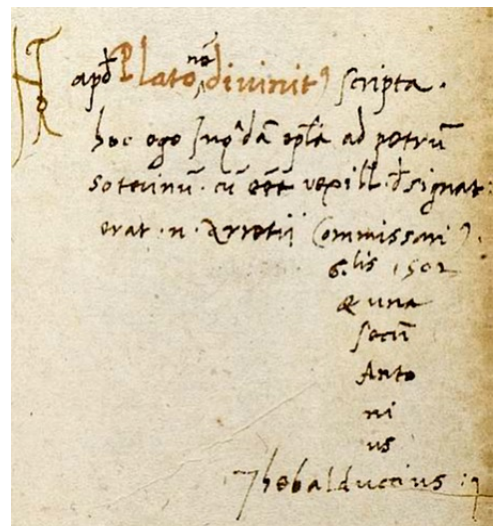 apđ Platonē divinitꝰ scripta.
hoc ego Inqᵈā epl̄a ad petrū
soterinū. cū eēt vexill. đsignat:
erat .n. Arretii Commissariꝰ.
6.lis 1502
& una
secū
Anto
ni
us
Thebalduccius :